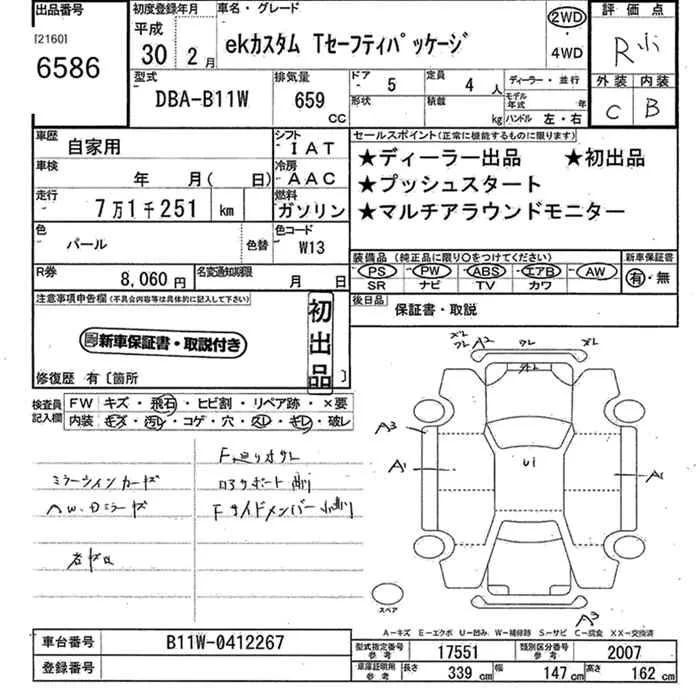 出品番号
[2160]
6586
初度登録年月
平成
30年 2月
車名・グレード
ekカスタム Tセーフティパッケージ
2WD
・
4WD
評価点
R
外装 内装
C B
型式
DBA-B11W
排気量
659 CC
ドア 5
形状
定員 4人
積載 kg
ディーラー・並行
モデル年式 年
ハンドル 左・右
車歴
自家用
シフト
IAT
車検
年 月( 日)
冷房
AAC
走行
7万1千251 km
燃料
ガソリン
色
パール
色替
色コード
W13
R券
8,060円
名変通知期限
月 日
セールスポイント(正常に機能するものに限ります)
★ディーラー出品 ★初出品
★プッシュスタート
★マルチアラウンドモニター
装備品(純正品に限り○をつけてください)
PS・PW・ABS・エアB・AW
SR ナビ TV カワ
新車保証書
有・無
後日品
保証書・取説
注意事項申告欄(不具合内容等は具体的に記入して下さい)
新車保証書・取説付き
初出品
修復歴 有〔箇所 〕
検査員記入欄
FW キズ・飛石・ヒビ割・リペア跡・×要
内装 キズ・汚レ・コゲ・穴・スレ・キレ・破レ
ミラーウインカーキズ
F廻リオサレ
ロアサポート曲り
Fサイドメンバー
A2
A3
A1
U1
A1
A3
スペア
A-キズ E-エクボ U-凹み W-補修跡 S-サビ C-腐食 XX-交換済
車台番号
B11W-0412267
登録番号
型式指定番号 参考
17551
類別区分番号 参考
2007
車庫証明用 参考
長さ 339 cm
幅 147 cm
高さ 162 cm